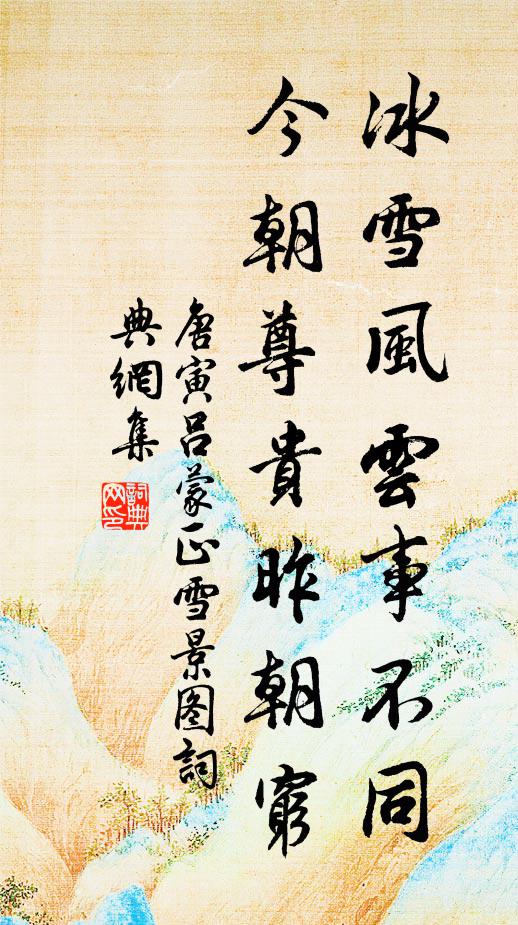 冰雪風雲事不同
今朝尊貴昨朝窮
唐寅呂蒙正雪景图詞
典網集
詞典
网印